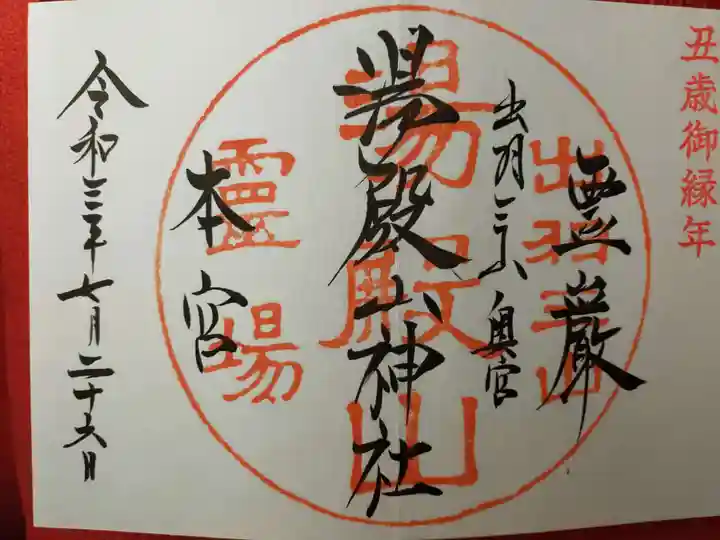 丑歳御縁年
霊巌
出羽三山
出羽三山 奥宮
湯殿山神社
湯殿山
本宮
霊場
令和三年七月二十六日